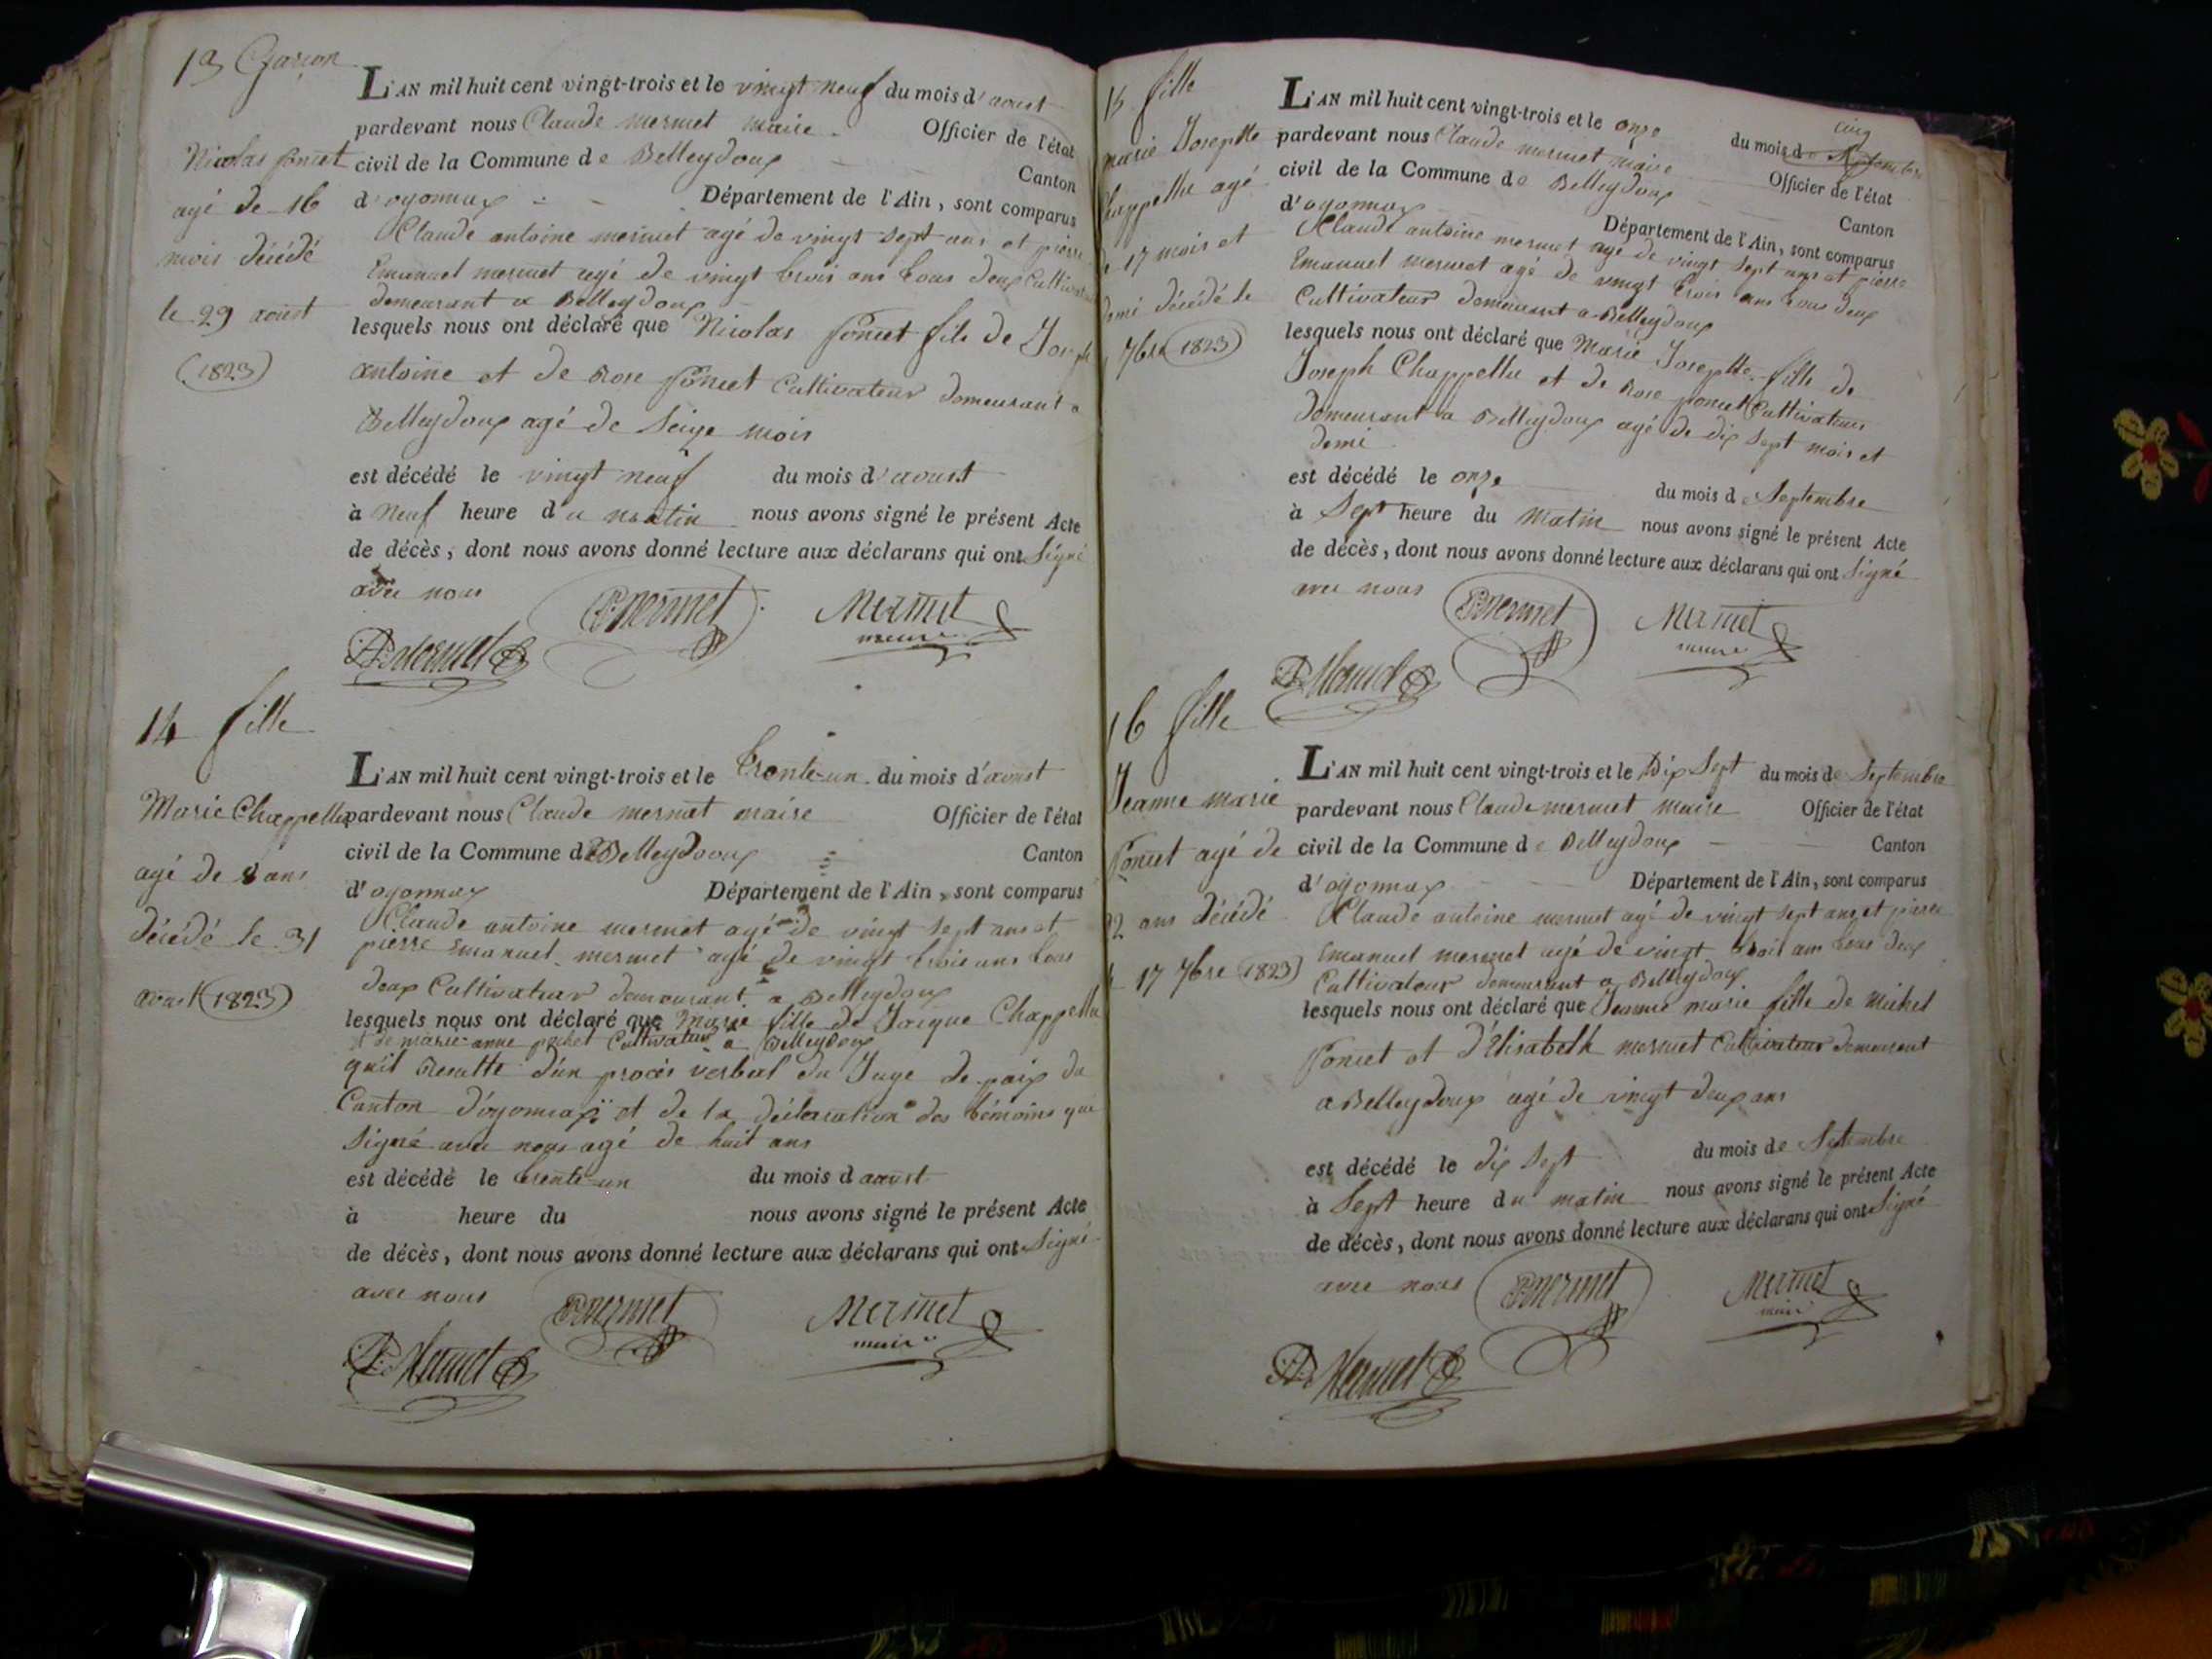 13 Garçon
Nicolas poncet
agé de 16
mois décédé
le 29 aoust
(1823)
L'AN mil huit cent vingt-trois et le vingt neuf du mois d'aoust
pardevant nous Claude mermet maire Officier de l'état
civil de la Commune de Belleydoux Canton
d'oyonnax Département de l'Ain, sont comparus
Claude antoine mermet agé de vingt sept ans et pierre
Emanuel mermet agé de vingt trois ans tous deux Cultivateur
demeurant a Belleydoux
lesquels nous ont déclaré que Nicolas poncet fils de Joseph
antoine et de Rose poncet Cultivateur demeurant a
Belleydoux agé de Seize mois
est décédé le vingt neuf du mois d'aoust
à Neuf heure du matin nous avons signé le présent Acte
de décès, dont nous avons donné lecture aux déclarans qui ont Signé
avec nous
Pmermet Mermet
maire
A Mermet
14 fille
Marie Chappellu
agé de 8 ans
décédé le 31
aoust (1823)
L'AN mil huit cent vingt-trois et le trente-un du mois d'aoust
pardevant nous Claude mermet maire Officier de l'état
civil de la Commune de Belleydoux Canton
d'oyonnax Département de l'Ain, sont comparus
Claude antoine mermet agé de vingt sept ans et
pierre Emanuel mermet agé de vingt trois ans tous
deux Cultivateur demeurant a Belleydoux
lesquels nous ont déclaré que Marie fille de Jacque Chappellu
et de marie-anne Cultivateur a Belleydoux
qu'il Resulte d'un procès verbal du Juge de paix du
Canton d'oyonnax et de la déclaration des témoins qui
Signé avec nous agé de huit ans
est décédé le trente-un du mois d aoust
à heure du nous avons signé le présent Acte
de décès, dont nous avons donné lecture aux déclarans qui ont Signé
avec nous
Pmermet Mermet
maire
A Mermet
15 fille
marie Josephte
Chappellu agé
de 17 mois et
demi décédé le
7bre (1823)
L'AN mil huit cent vingt-trois et le onze du mois de Septembre
cinq
pardevant nous Claude mermet maire Officier de l'état
civil de la Commune de Belleydoux Canton
d'oyonnax Département de l'Ain, sont comparus
Claude antoine mermet agé de vingt sept ans et pierre
Emanuel mermet agé de vingt trois ans tous deux
Cultivateur demeurant a Belleydoux
lesquels nous ont déclaré que Marie Josephte fille de
Joseph Chappellu et de Rose poncet Cultivateur
demeurant a Belleydoux agé de dix sept mois et
demi
est décédé le onze du mois de Septembre
à Sept heure du Matin nous avons signé le présent Acte
de décès, dont nous avons donné lecture aux déclarans qui ont Signé
avec nous
Pmermet Mermet
maire
A Mermet
16 fille
Jeanne marie
Poncet agé de
22 ans décédé
le 17 7bre (1823)
L'AN mil huit cent vingt-trois et le Dix Sept du mois de Septembre
pardevant nous Claude mermet maire Officier de l'état
civil de la Commune de Belleydoux Canton
d'oyonnax Département de l'Ain, sont comparus
Claude antoine mermet agé de vingt sept ans et pierre
Emanuel mermet agé de vingt trois ans tous deux
Cultivateur demeurant a Belleydoux
lesquels nous ont déclaré que Jeanne marie fille de Michel
Poncet et d'Elisabeth mermet Cultivateur demeurant
a Belleydoux agé de vingt deux ans
est décédé le dix Sept du mois de Septembre
à Sept heure du matin nous avons signé le présent Acte
de décès, dont nous avons donné lecture aux déclarans qui ont Signé
avec nous
Pmermet Mermet
maire
A Mermet